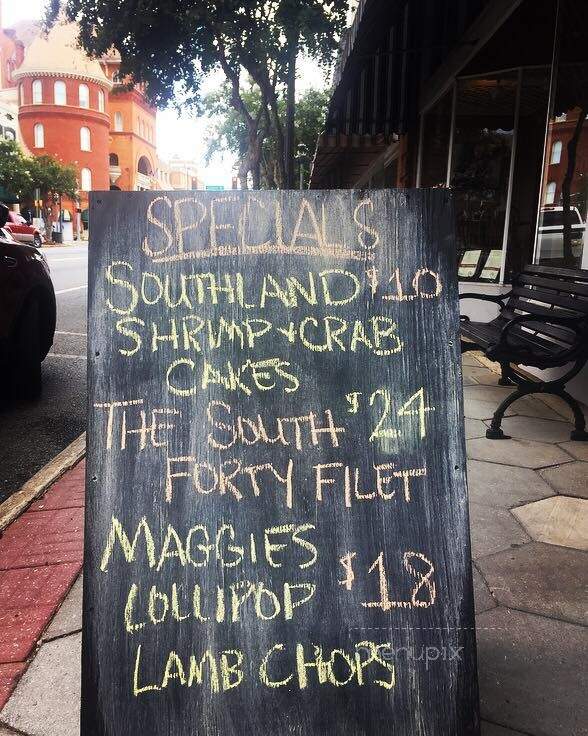 SPECIALS
SOUTHLAND $10
SHRIMP + CRAB
CAKES
THE SOUTH $24
FORTY FILET
MAGGIES
LOLLIPOP $18
LAMB CHOPS
menupix